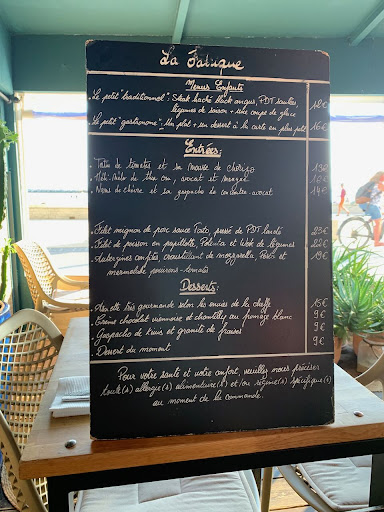 La Fabrique
Menus Enfants
Le petit "traditionnel": Steak haché black angus, PDT sautées,
légumes de saison + une coupe de glace 12€
Le petit "gastronome": Un plat + un dessert à la carte en plus petit 16€
Entrées:
. Tarte de tomates et sa mousse de chorizo 13€
. Mi-cuit de thon, avocat et mangue
. Nems de chèvre et sa gaspacho de concombre-avocat 14€
. Filet mignon de porc sauce Porto, purée de PDT 23€
. Filet de poisson en papillote, Polenta et Wok de légumes 22€
. Aubergines confites croustillant de mozzarella, Pesto et 19€
marmelade poivrons-tomates
Desserts:
. Assiette très gourmande selon les envies de la cheffe 15€
. Crème chocolat viennoise et chantilly au fromage blanc 9€
. Gaspacho de fruits et granité de fraises 9€
. Dessert du moment 9€
Pour votre santé et votre confort, veuillez nous préciser
toute(s) allergie(s) alimentaire(s) et/ou régime(s) spécifique(s)
au moment de la commande.